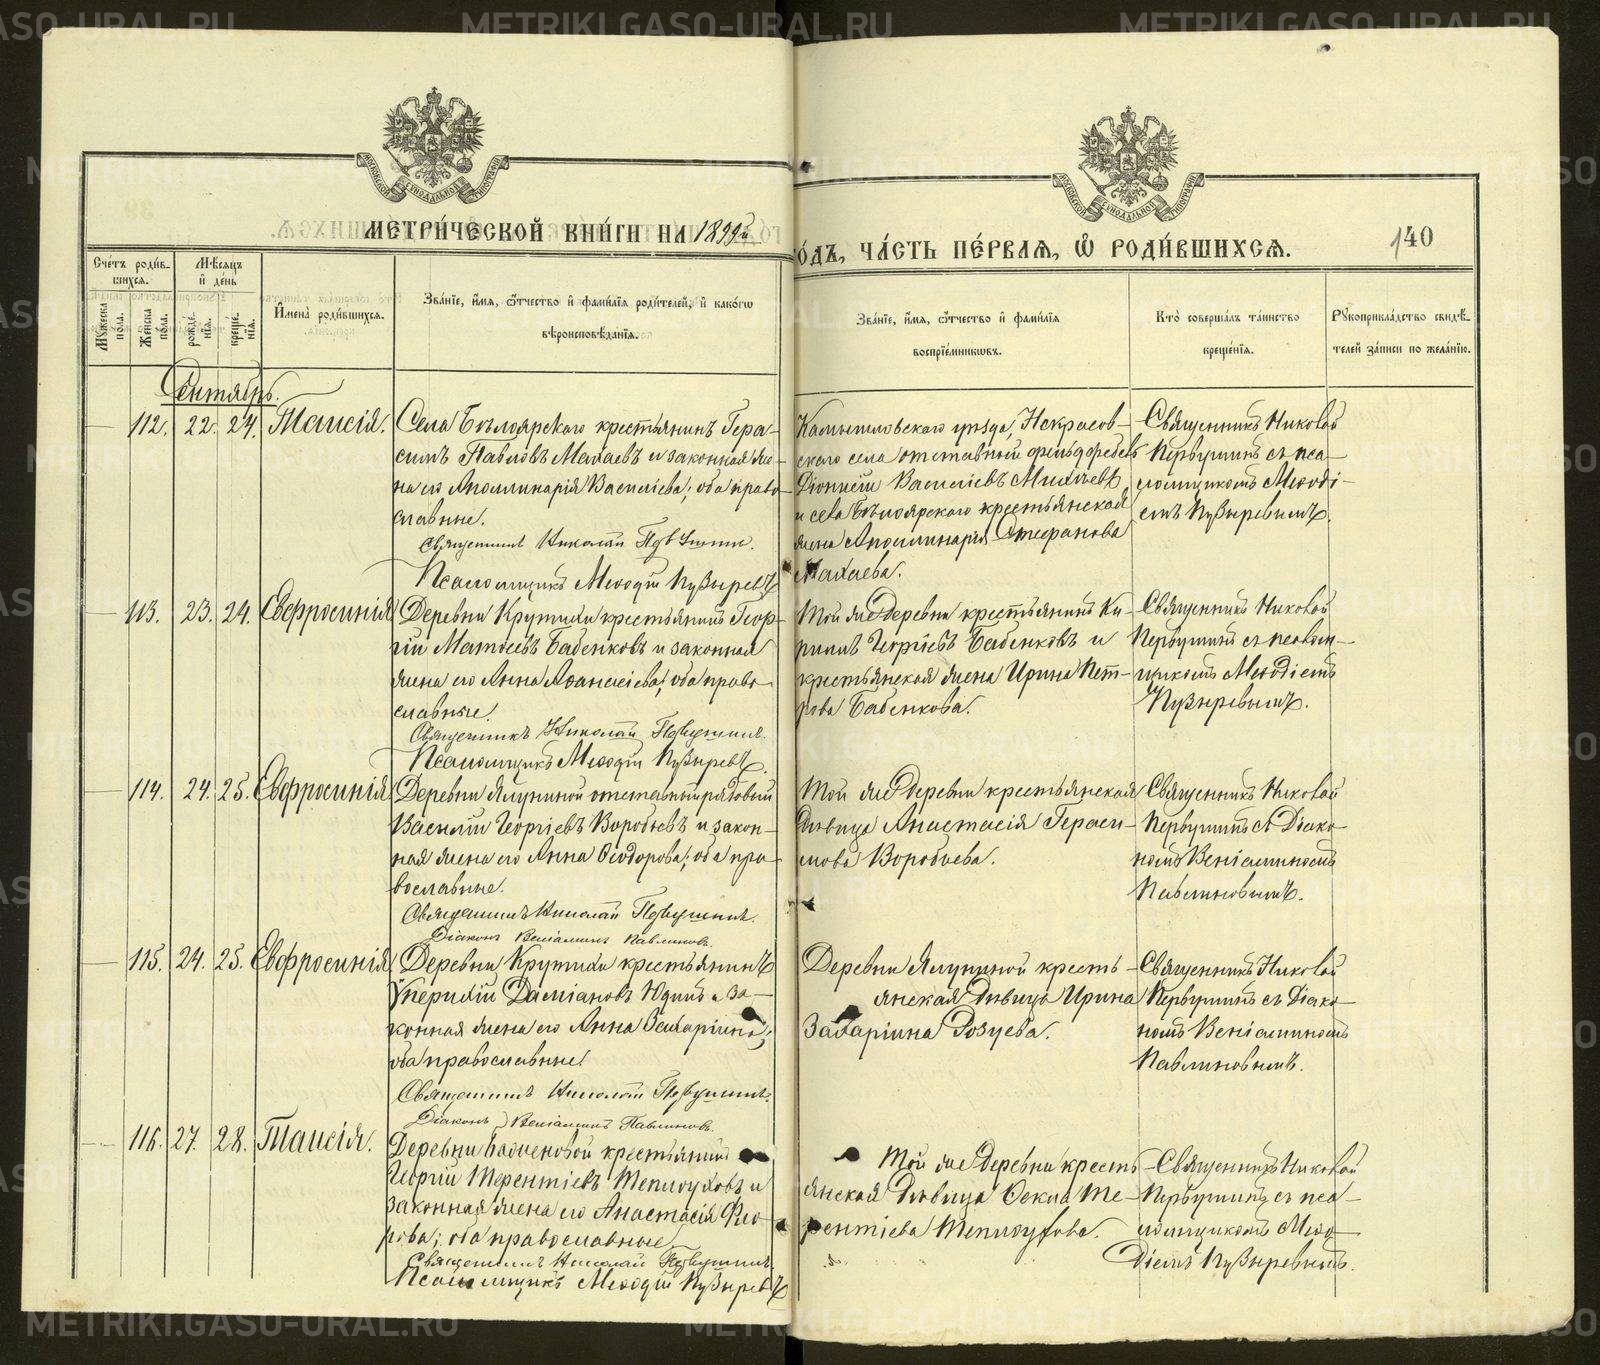 МЕТРИ́ЧЕСКОЙ КНИ́ГИ НА 1899й
ГО́ДЪ, ЧА́СТЬ ПЕ́РВАЯ, Ѡ҆ РОДИ́ВШИХСЯ.
140
Сче́тъ роди́в-
шихся.
Мꙋ́жеска по́ла.
Же́нска по́ла.
Мѣ́сяцъ и҆ де́нь
рожде́-
нїя.
креще́-
нїя.
И҆мена̀ роди́вшихся.
Зва́нїе, и҆́мя, ѻ҆́тчество и҆ фами́лїя роди́телей, и҆ како́гѡ
вѣроисповѣ́данїя.
Зва́нїе, и҆́мя, ѻ҆́тчество и҆ фами́лїя
воспрїе́мникѡвъ.
Кто̀ соверша́лъ та́инство
креще́нїя.
Рꙋкоприкла́дство свидѣ́-
телей за́писи по жела́нїю.
Сентябрь.
112. 22. 24. Таисія.
Села Бѣлоярскаго крестьянинъ Гера-
симъ Павловъ Махаевъ и законная же-
на его Аполлинарія Васильева; оба право-
славные.
Священникъ Николай Первушинъ.
Псаломщикъ Меѳодій Пузыревъ
Камышловскаго уѣзда, Некрасов-
скаго села отставный фельдфебель
Діонисій Васильевъ
и села Бѣлоярскаго крестьянская
жена Аполлинарія Стефанова
Махаева.
Священникъ Николай
Первушинъ съ пса-
ломщикомъ Меѳоді-
емъ Пузыревымъ.
113. 23. 24. Евфросинія
Деревни Крутихи крестьянинъ Геор-
гій Матѳеевъ Бабенковъ и законная
жена его Анна Аѳанасіева; оба право-
славные.
Священникъ Николай Первушинъ.
Псаломщикъ Меѳодій Пузыревъ.
Той же деревни крестьянинъ Ки-
риллъ Георгіевъ Бабенковъ и
крестьянская жена Ирина Пет-
рова Бабенкова.
Священникъ Николай
Первушинъ съ псалом-
щикомъ Меѳодіемъ
Пузыревымъ.
114. 24. 25. Евфросинія
Деревни Ялуниной отставный рядовый
Василій Георгіевъ Воробьевъ и закон-
ная жена его Анна Ѳеодорова; оба пра-
вославные.
Священникъ Николай Первушинъ.
Діаконъ Веніаминъ Павлиновъ.
Той же деревни крестьянская
дѣвица Анастасія Гераси-
мова Воробьева.
Священникъ Николай
Первушинъ съ Діако-
номъ Веніаминомъ
Павлиновымъ.
115. 24. 25. Евфросинія
Деревни Крутихи крестьянинъ
Даміановъ Юдинъ и за-
конная жена его Анна Захаріина;
оба православные.
Священникъ Николай Первушинъ.
Діаконъ Веніаминъ Павлиновъ.
Деревни Ялуниной кресть-
янская дѣвица Ирина
Захаріина
Священникъ Николай
Первушинъ съ Діако-
номъ Веніаминомъ
Павлиновымъ.
116. 27. 28. Таисія.
Деревни крестьянинъ
Георгій Терентіевъ Теплоуховъ и
законная жена его Анастасія Фло-
рова; оба православные
Священникъ Николай Первушинъ.
Псаломщикъ Меѳодій Пузыревъ
Той же деревни кресть-
янская дѣвица Ѳекла Те-
рентіева Теплоухова.
Священникъ Николай
Первушинъ съ пса-
ломщикомъ Меѳо-
діемъ Пузыревымъ.
METRIKI.GASO-URAL.RU